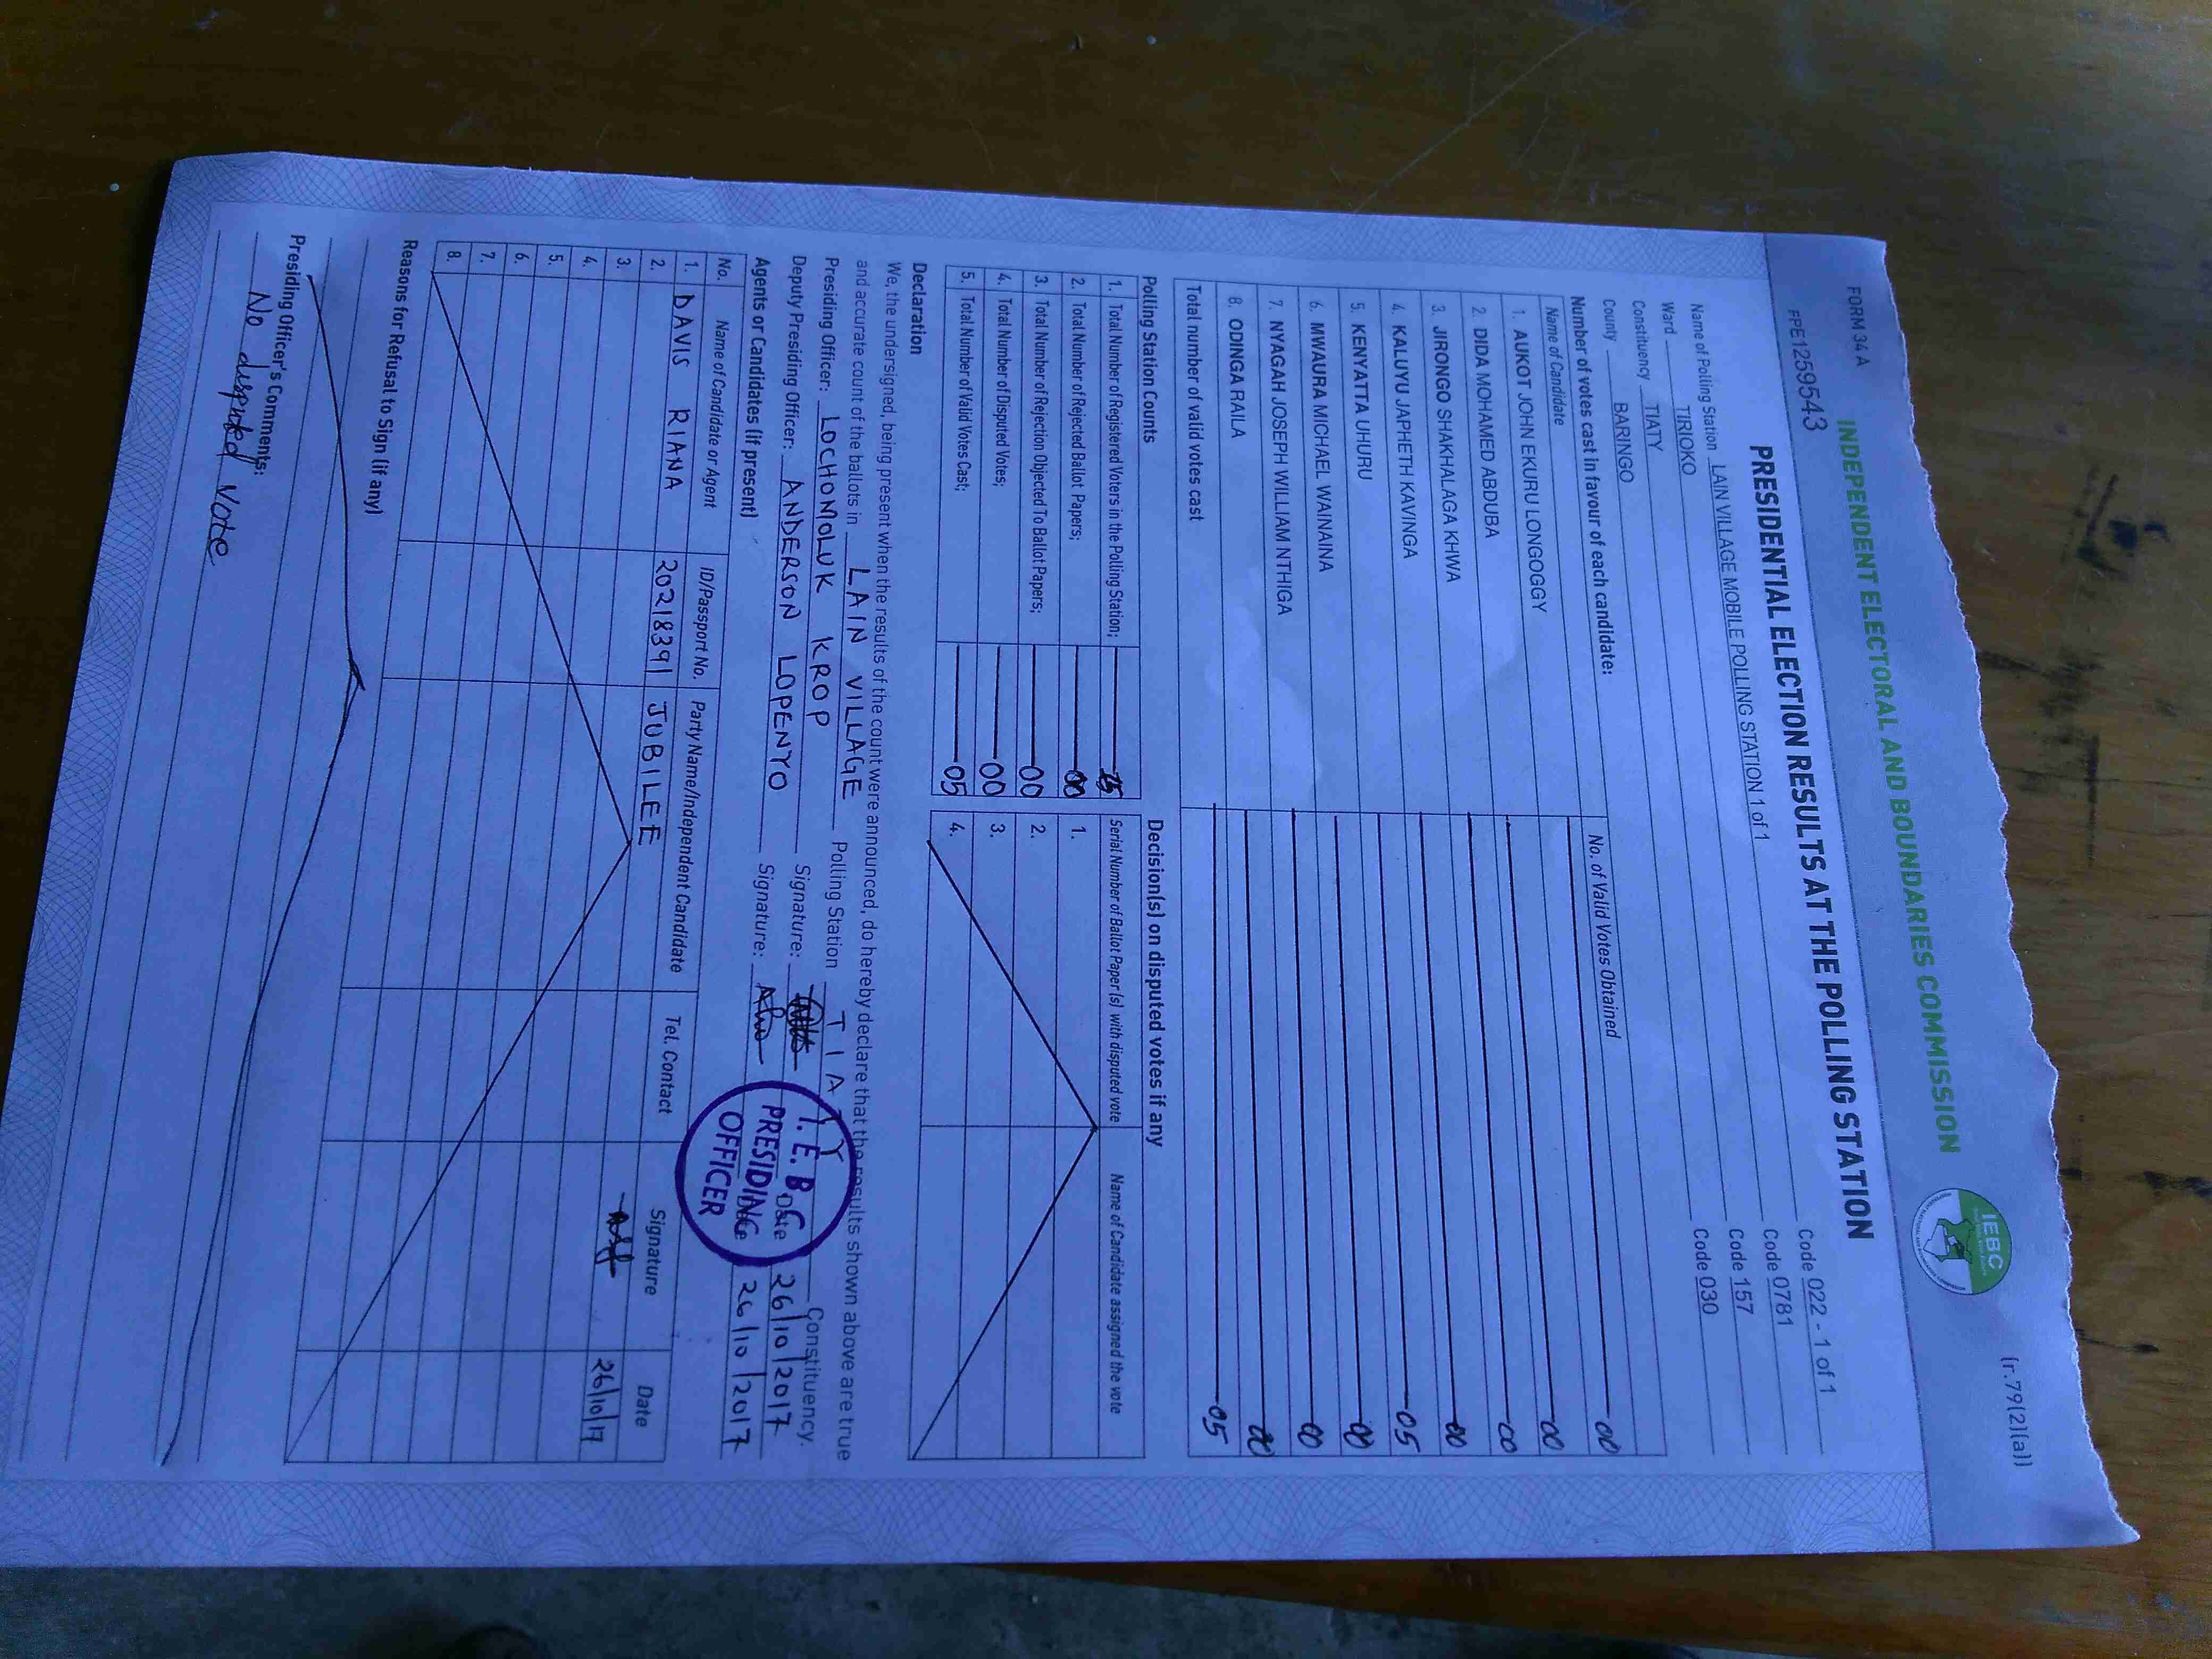 FORM 34 A
(r.79(2)(a))
INDEPENDENT ELECTORAL AND BOUNDARIES COMMISSION
IEBC
FPE1259543
PRESIDENTIAL ELECTION RESULTS AT THE POLLING STATION
Name of Polling Station LAIN VILLAGE MOBILE POLLING STATION 1 of 1 Code 022 - 1 of 1
Ward TIRIOKO Code 0781
Constituency TIATY Code 157
County BARINGO Code 030
Number of votes cast in favour of each candidate:
Name of Candidate No. of Valid Votes Obtained
1. AUKOT JOHN EKURU LONGOGGY 00
2. DIDA MOHAMED ABDUBA 00
3. JIRONGO SHAKHALAGA KHWA 00
4. KALUYU JAPHETH KAVINGA 00
5. KENYATTA UHURU 05
6. MWAURA MICHAEL WAINAINA 00
7. NYAGAH JOSEPH WILLIAM NTHIGA 00
8. ODINGA RAILA 00
Total number of valid votes cast 05
Polling Station Counts
1. Total Number of Registered Voters in the Polling Station;
2. Total Number of Rejected Ballot Papers; 00
3. Total Number of Rejection Objected To Ballot Papers; 00
4. Total Number of Disputed Votes; 00
5. Total Number of Valid Votes Cast; 05
Decision(s) on disputed votes if any
Serial Number of Ballot Paper (s) with disputed vote Name of Candidate assigned the vote
1.
2.
3.
4.
Declaration
We, the undersigned, being present when the results of the count were announced, do hereby declare that the results shown above are true
and accurate count of the ballots in LAIN VILLAGE Polling Station TIATY Constituency.
Presiding Officer: LOCHOMOLUK KROP Signature: Date 26/10/2017
Deputy Presiding Officer: ANDERSON LOPENYO Signature: Date 26/10/2017
I.E.B.C
PRESIDING
OFFICER
Agents or Candidates (if present)
No. Name of Candidate or Agent ID/Passport No. Party Name/Independent Candidate Tel. Contact Signature Date
1. DAVIS RIANA 20218391 JUBILEE 26/10/17
2.
3.
4.
5.
6.
7.
8.
Reasons for Refusal to Sign (if any)
Presiding Officer's Comments:
No disputed Vote